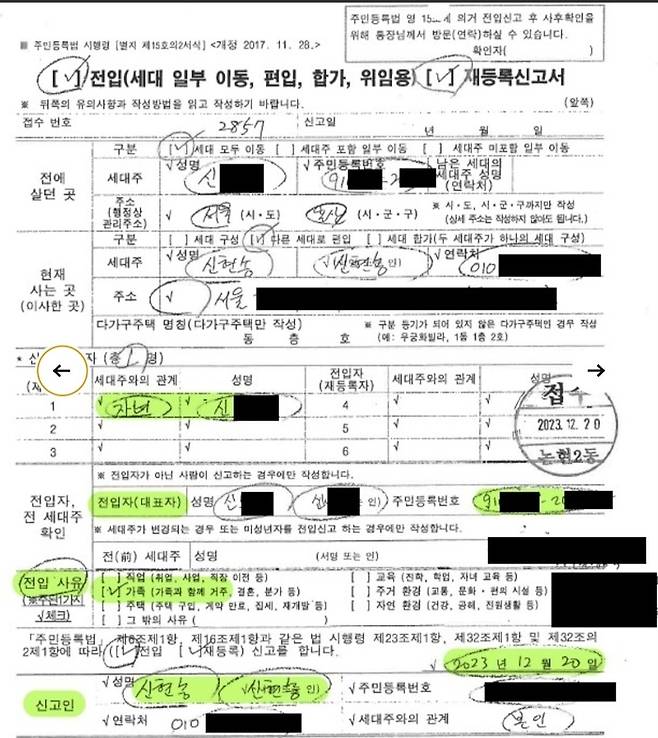 주민등록법 영 15 에 의거 전입신고 후 사후확인을
위해 통장님께서 방문(연락)하실 수 있습니다.
확인자( )
■ 주민등록법 시행령 [별지 제15호의2서식] <개정 2017. 11. 28.>
[✓] 전입(세대 일부 이동, 편입, 합가, 위임용) [✓] 재등록신고서
※ 뒤쪽의 유의사항과 작성방법을 읽고 작성하기 바랍니다. (앞쪽)
접수 번호 2857 신고일 년 월 일
전에 살던 곳
구분 [✓] 세대 모두 이동 [ ] 세대주 포함 일부 이동 [ ] 세대주 미포함 일부 이동
세대주 √성명 신 √주민등록번호 91 -2 남은 세대의 세대주 성명 (연락처)
주소 (행정상 관리주소) √ 서울 (시·도) (시·군·구) ※ 시·도, 시·군·구까지만 작성
(상세 주소는 작성하지 않아도 됩니다.)
현재 사는 곳 (이사한 곳)
구분 [ ] 세대 구성 [✓] 다른 세대로 편입 [ ] 세대 합가(두 세대주가 하나의 세대 구성)
세대주 √성명 인) √연락처 010
주소 √ 서울
다가구주택 명칭(다가구주택만 작성) ※ 구분 등기가 되어 있지 않은 다가구주택인 경우 작성
동 층 호 (예: 무궁화빌라, 1동 1층 2호)
* 신 자 (총 1 명)
세대주와의 관계 성명 전입자 (재등록자) 세대주와의 관계 성명
1 √ 자녀 √ 신 4 √ √
2 √ √ 5 √
3 √ √ 6 √
접수
2023.12.20
논현2동
※ 전입자가 아닌 사람이 신고하는 경우에만 작성합니다.
전입자, 전 세대주 확인
전입자(대표자) 성명 신 인) 주민등록번호 91 -2
※ 세대주가 변경되는 경우 또는 미성년자를 전입신고 하는 경우에만 작성합니다.
전(前) 세대주 성명 (서명 또는 인)
전입 사유
(※주된1가지 √체크)
[ ] 직업 (취업, 사업, 직장 이전 등) [ ] 교육 (진학, 학업, 자녀 교육 등)
[✓] 가족 (가족과 함께 거주, 결혼, 분가 등) [ ] 주거 환경 (교통, 문화·편의 시설 등)
[ ] 주택 (주택 구입, 계약 만료, 집세, 재개발 등) [ ] 자연 환경 (건강, 공해, 전원생활 등)
[ ] 그 밖의 사유 ( )
「주민등록법」 제16조제1항과 같은 법 시행령 제23조제1항, 제32조제1항 및 제32조의
2제1항에 따라 [✓]전입 [✓]재등록) 신고를 합니다.
√ 2023 년 12 월 20 일
신고인
√성명 인) √주민등록번호
√연락처 010 √세대주와의 관계 본인